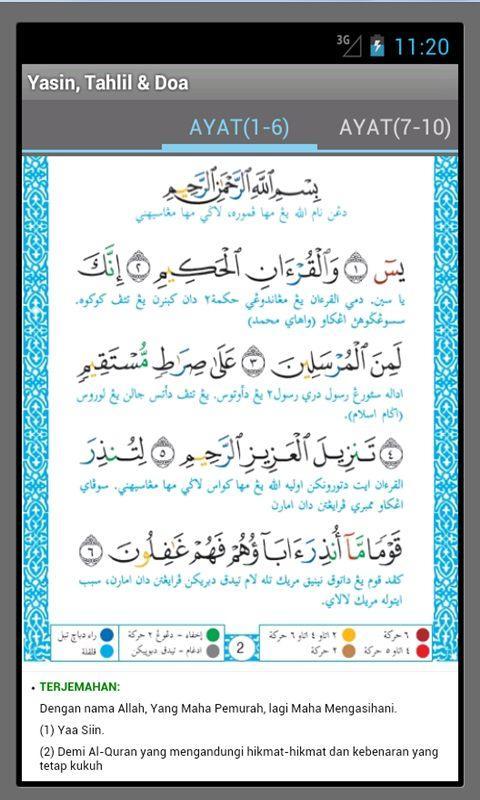 3G 11:20
Yasin, Tahlil & Doa
AYAT(1-6) AYAT(7-10)
بِسْمِ اللَّهِ الرَّحْمَٰنِ الرَّحِيمِ
دڠن نام الله يڠ مها ڤموره، لاڬي مها مڠاسيهني
يسٓ ۝١ وَالْقُرْءَانِ الْحَكِيمِ ۝٢ إِنَّكَ
يا سين. دمي القرءان يڠ مڠاندوڠي حكمة٢ دان كبنرن يڠ تتڤ كوكوه.
سسوڠڬوهن اڠكاو (واهاي محمد)
لَمِنَ الْمُرْسَلِينَ ۝٣ عَلَىٰ صِرَاطٍ مُّسْتَقِيمٍ
اداله سئورڠ رسول دري رسول٢ يڠ دأوتوس. يڠ تتڤ دأتس جالن يڠ لوروس
(اڬام اسلام).
۝٤ تَنزِيلَ الْعَزِيزِ الرَّحِيمِ ۝٥ لِتُنذِرَ
القرءان ايت دتورونكن اوليه الله يڠ مها كواس لاڬي مها مڠاسيهني. سوڤاي
اڠكاو ممبري ڤرايڠتن دان امارن
قَوْمًا مَّآ أُنذِرَ ءَابَآؤُهُمْ فَهُمْ غَٰفِلُونَ ۝٦
كڤد قوم يڠ داتوق نينيق مريك تله لام تيدق دبريكن ڤرايڠتن دان امارن، سبب
ايتوله مريك لالاي.
٦ حركة ٢ اتاو ٤ اتاو ٦ حركة إخفاء - دڠوڠ ٢ حركة راء دباچ تبل
٤ اتاو ٥ حركة ٢ حركة 2 ادغام - تيدق دبوييكن قلقلة
• TERJEMAHAN:
Dengan nama Allah, Yang Maha Pemurah, lagi Maha Mengasihani.
(1) Yaa Siin.
(2) Demi Al-Quran yang mengandungi hikmat-hikmat dan kebenaran yang
tetap kukuh